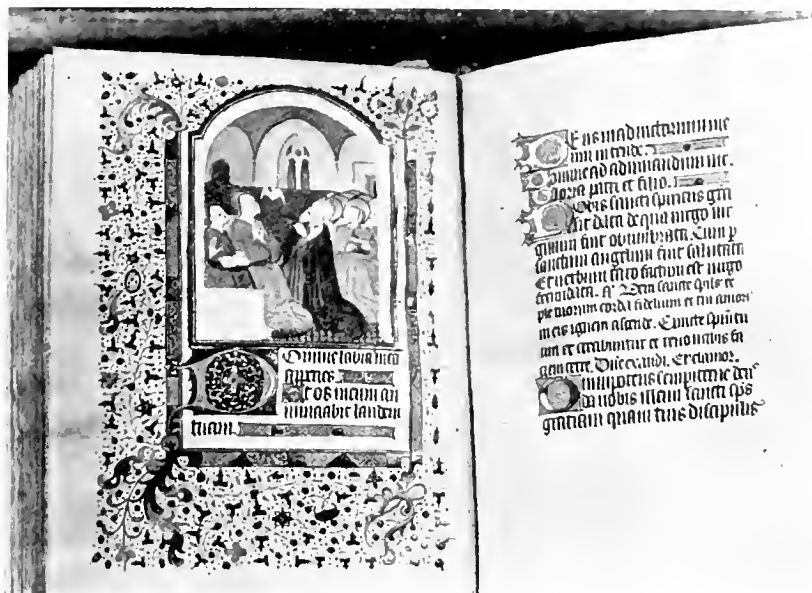 Domine labia mea
aperies
Et os meum an
nunciabit laudem
tuam
Deus in adiutorium me
um intende
Domine ad adiuvandum me
Gloria patri et filio
Nobis sancti spiritus gra
sit data de qua virgo vir
ginum fuit obumbrata Cum p
sanctum angelum fuit salutata
Et verbum caro factum est virgo
fecundata. Veni sancte spūs re
ple tuorum corda fidelium et tui amoris
in eis ignem accende. Emitte spiritū
tuum et creabuntur et renovabis fa
ciem terre. Dñe exaudi. Et clamor.
Omnipotens sempiterne deus
da nobis illam sancti sps
gratiam quam tuis discipulis